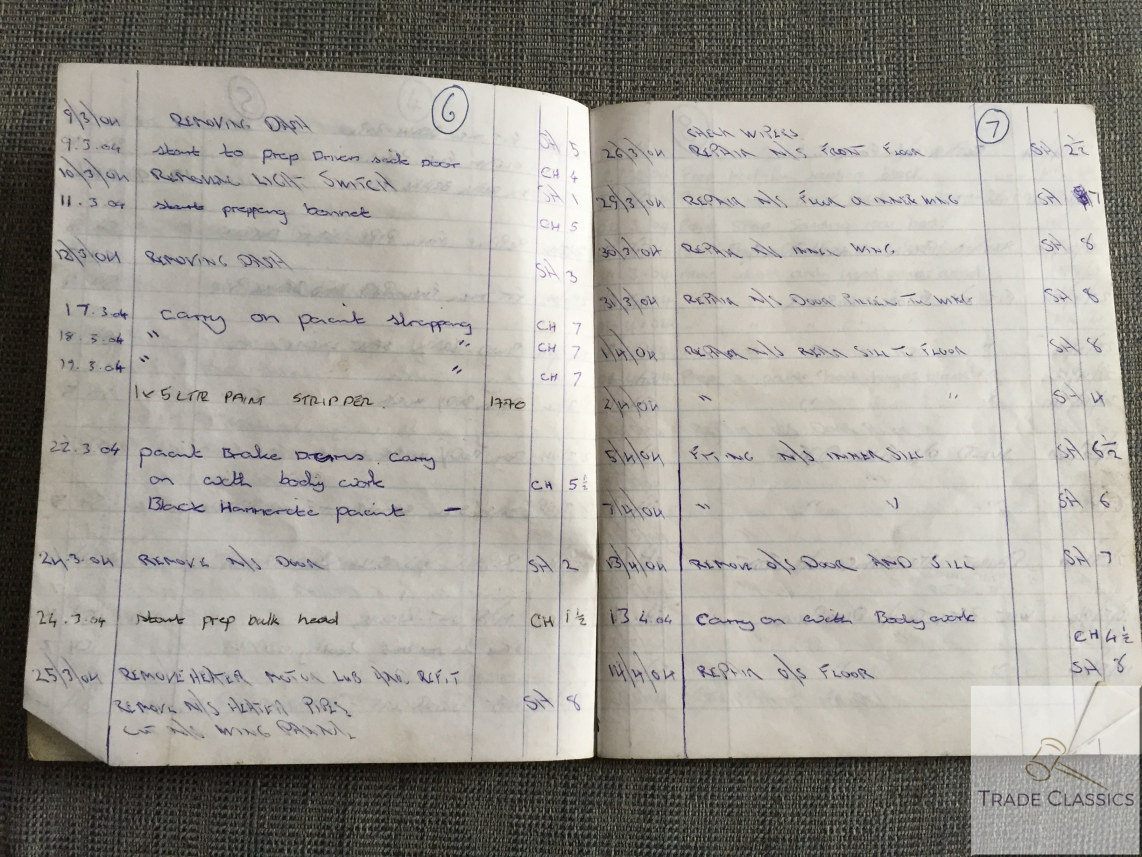 6
9/3/04 REMOVING DASH SH 5
9.3.04 start to prep Drivers side Door CH 4
10/3/04 REMOVAL LIGHT SWITCH SH 1
11.3.04 start prepping bonnet CH 5
12/3/04 REMOVING DASH SH 3
17.3.04 Carry on paint stripping CH 7
18.3.04 " " CH 7
19.3.04 " " CH 7
1x5 LTR PAINT STRIPPER. 1770
22.3.04 paint Brake Drums. Carry
on with body work CH 5 1/2
Black Hammerite paint —
24.3.04 REMOVE N/S DOOR SH 2
24.3.04 start prep bulk head CH 1 1/2
25/3/04 REMOVE HEATER MOTOR LUB AND REFIT
REMOVE N/S HEATER PIPES SH 8
N/S WING
7
CHECK WIPERS
26/3/04 REPAIR N/S FRONT FLOOR SH 2 1/2
29/3/04 REPAIR N/S FLOOR & INNER WING SH 7
30/3/04 REPAIR N/S INNER WING SH 8
31/3/04 REPAIR N/S DOOR PILLER TO WING SH 8
1/4/04 REPAIR N/S REPAIR SILL TO FLOOR SH 8
2/4/04 " " SH 4
5/4/04 FITTING N/S INNER SILL SH 6 1/2
7/4/04 " " SH 6
13/4/04 REMOVE O/S DOOR AND SILL SH 7
13 4 04 Carry on with Body work
CH 4 1/2
14/4/04 REPAIR O/S FLOOR SH 8
TRADE CLASSICS